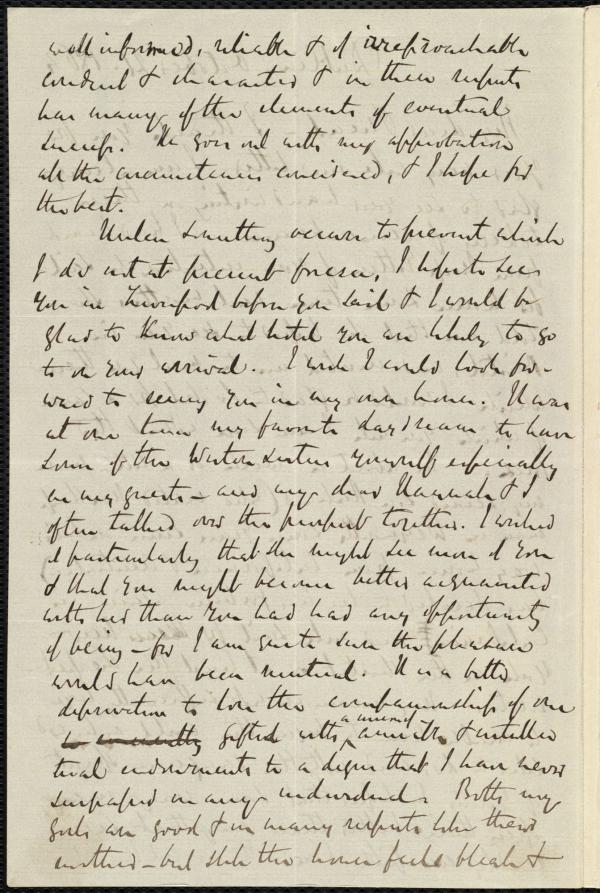 well informed, reliable & of irreproachable
conduct & character & in these respects
has many of the elements of eventual
success. He goes out with my approbation
all the circumstances considered, & I hope for
the best.
Unless something occurs to prevent which
I do not at present foresee, I hope to see
you in Liverpool before you sail & I would be
glad to know what hotel you are likely to go
to on your arrival. I wish I could look for-
ward to seeing you in my own house. It was
at one time my favorite daydream to have
some of the Weston sisters yourself especially
as my guests - and my dear Hannah & I
often talked over the prospect together. I wished
particularly that she might see more of you
& that you might become better acquainted
with her than you had had any opportunity
of being - for I am quite sure the pleasure
would have been mutual. It is a bitter
deprivation to lose the companionship of one
so eminently gifted with amiable & intellec
tual endowments to a degree that I have never
surpassed in any individual. Both my
girls are good & in many respects like their
mother - but still the house feels bleak &